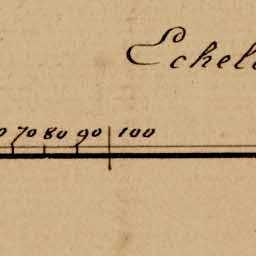 Echel
70 80 90 100